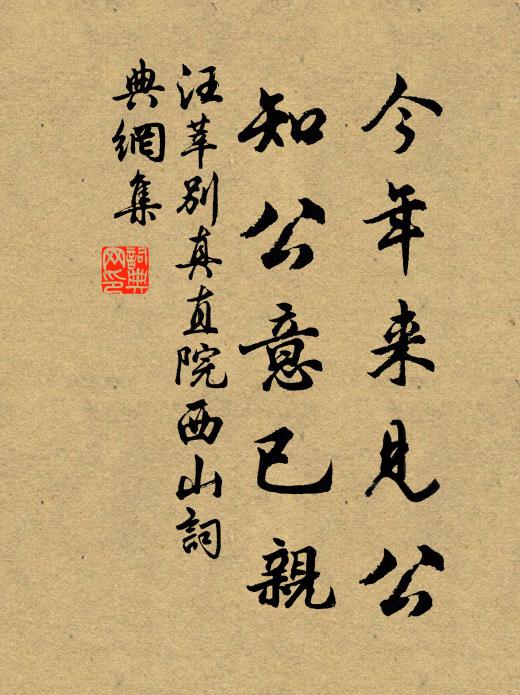 今年来見公
知公意已親
汪莘别真直院西山詞
典網集
詞典
网印